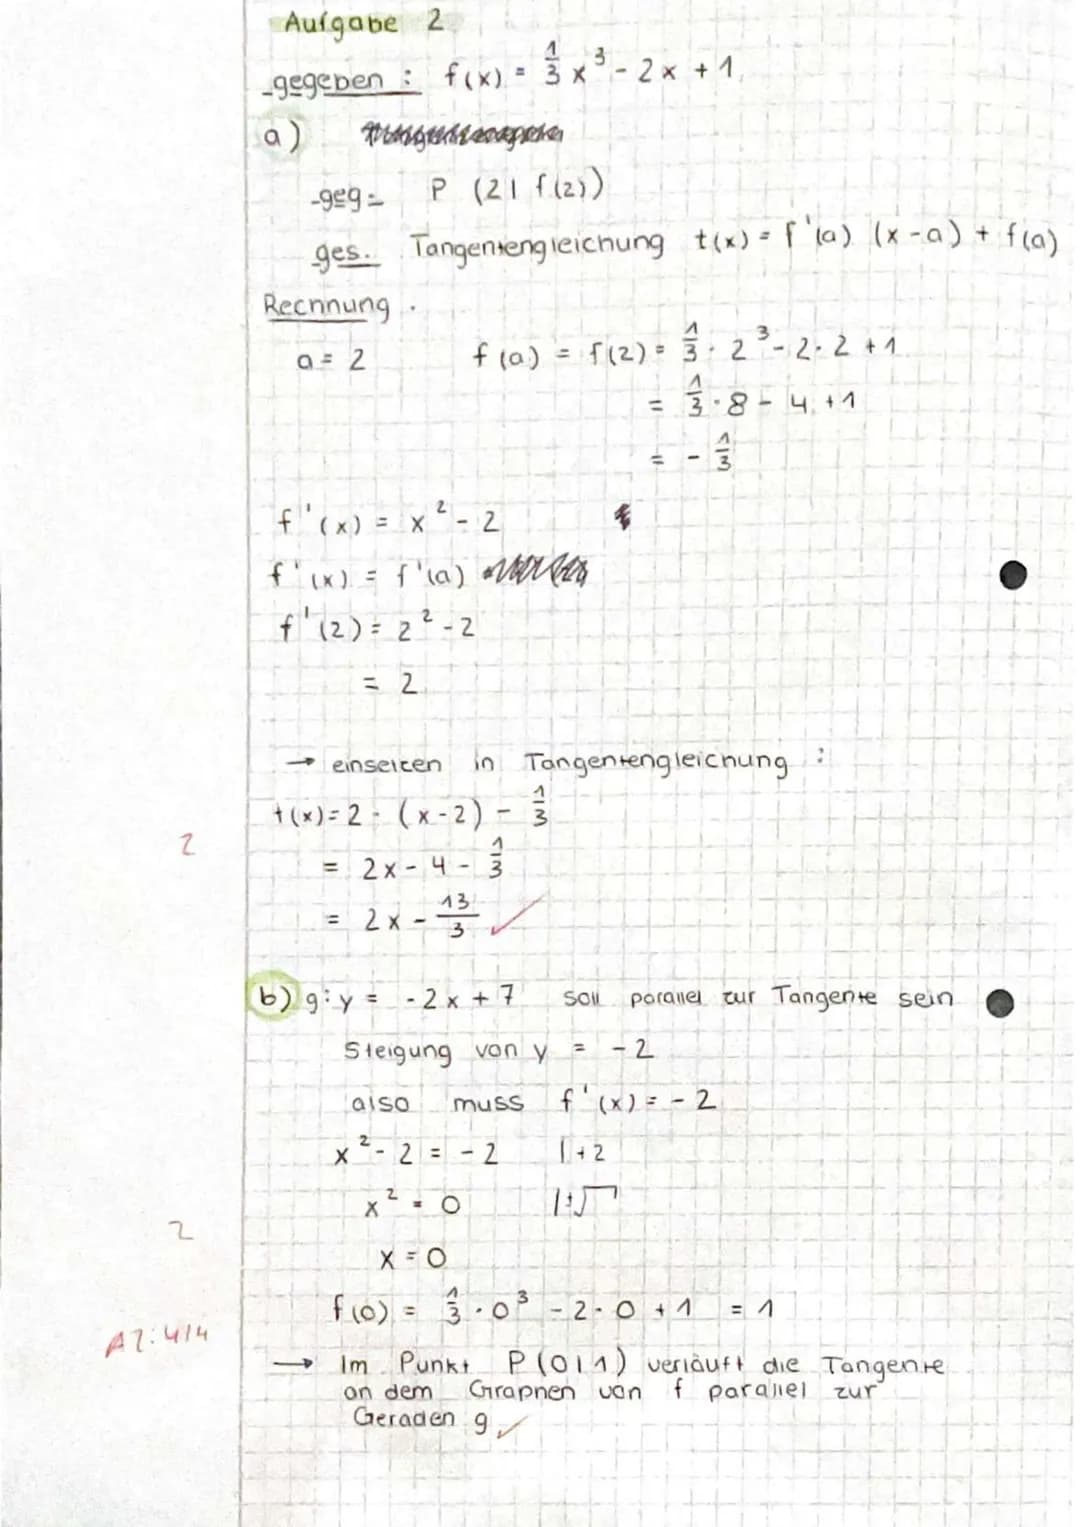 Aufgabe 2
gegeben: f(x) = 1/3 x³ - 2x + 1
a)
geg: P (2 | f(2))
ges. Tangentengleichung t(x) = f'(a) (x-a) + f(a)
Rechnung.
a = 2 f(a) = f(2) = 1/3 · 2³ - 2·2 + 1
= 1/3 · 8 - 4 + 1
= - 1/3
f'(x) = x² - 2
f'(x) = f'(a)
f'(2) = 2² - 2
= 2
→ einsetzen in Tangentengleichung:
t(x) = 2 · (x-2) - 1/3
2
= 2x - 4 - 1/3
= 2x - 13/3 ✓
b) g: y = -2x + 7 soll parallel zur Tangente sein
Steigung von y = -2
also muss f'(x) = -2
x² - 2 = -2 | +2
x² = 0 | ±√
2
x = 0
f(0) = 1/3 · 0³ - 2·0 + 1 = 1
A2: 4/4
→ Im Punkt P(0|1) verläuft die Tangente
an dem Graphen von f parallel zur
Geraden g ✓